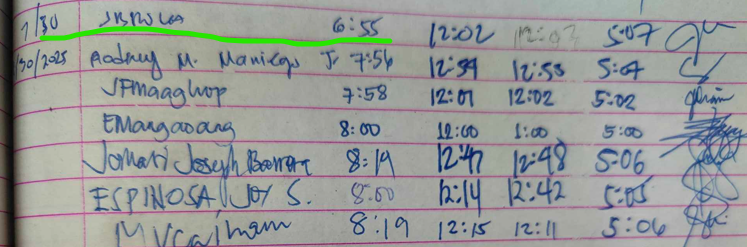 1/30 6:55 12:02 12:03 5:07
1/30/2025 Rodney M. Maniego Jr 7:56 12:59 12:58 5:07
JFMaaghop 7:58 12:01 12:02 5:02
EMangaoang 8:00 12:00 1:00 5:00
Jomari Joseph 8:19 12:47 12:48 5:06
ESPINOSA, JOY S. 8:00 12:14 12:42 5:05
8:19 12:15 12:11 5:06